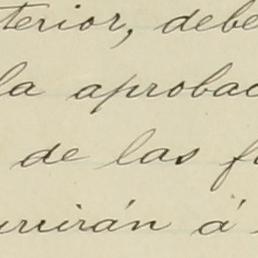 terior, debe
la aprobac
de las f
urrirán á